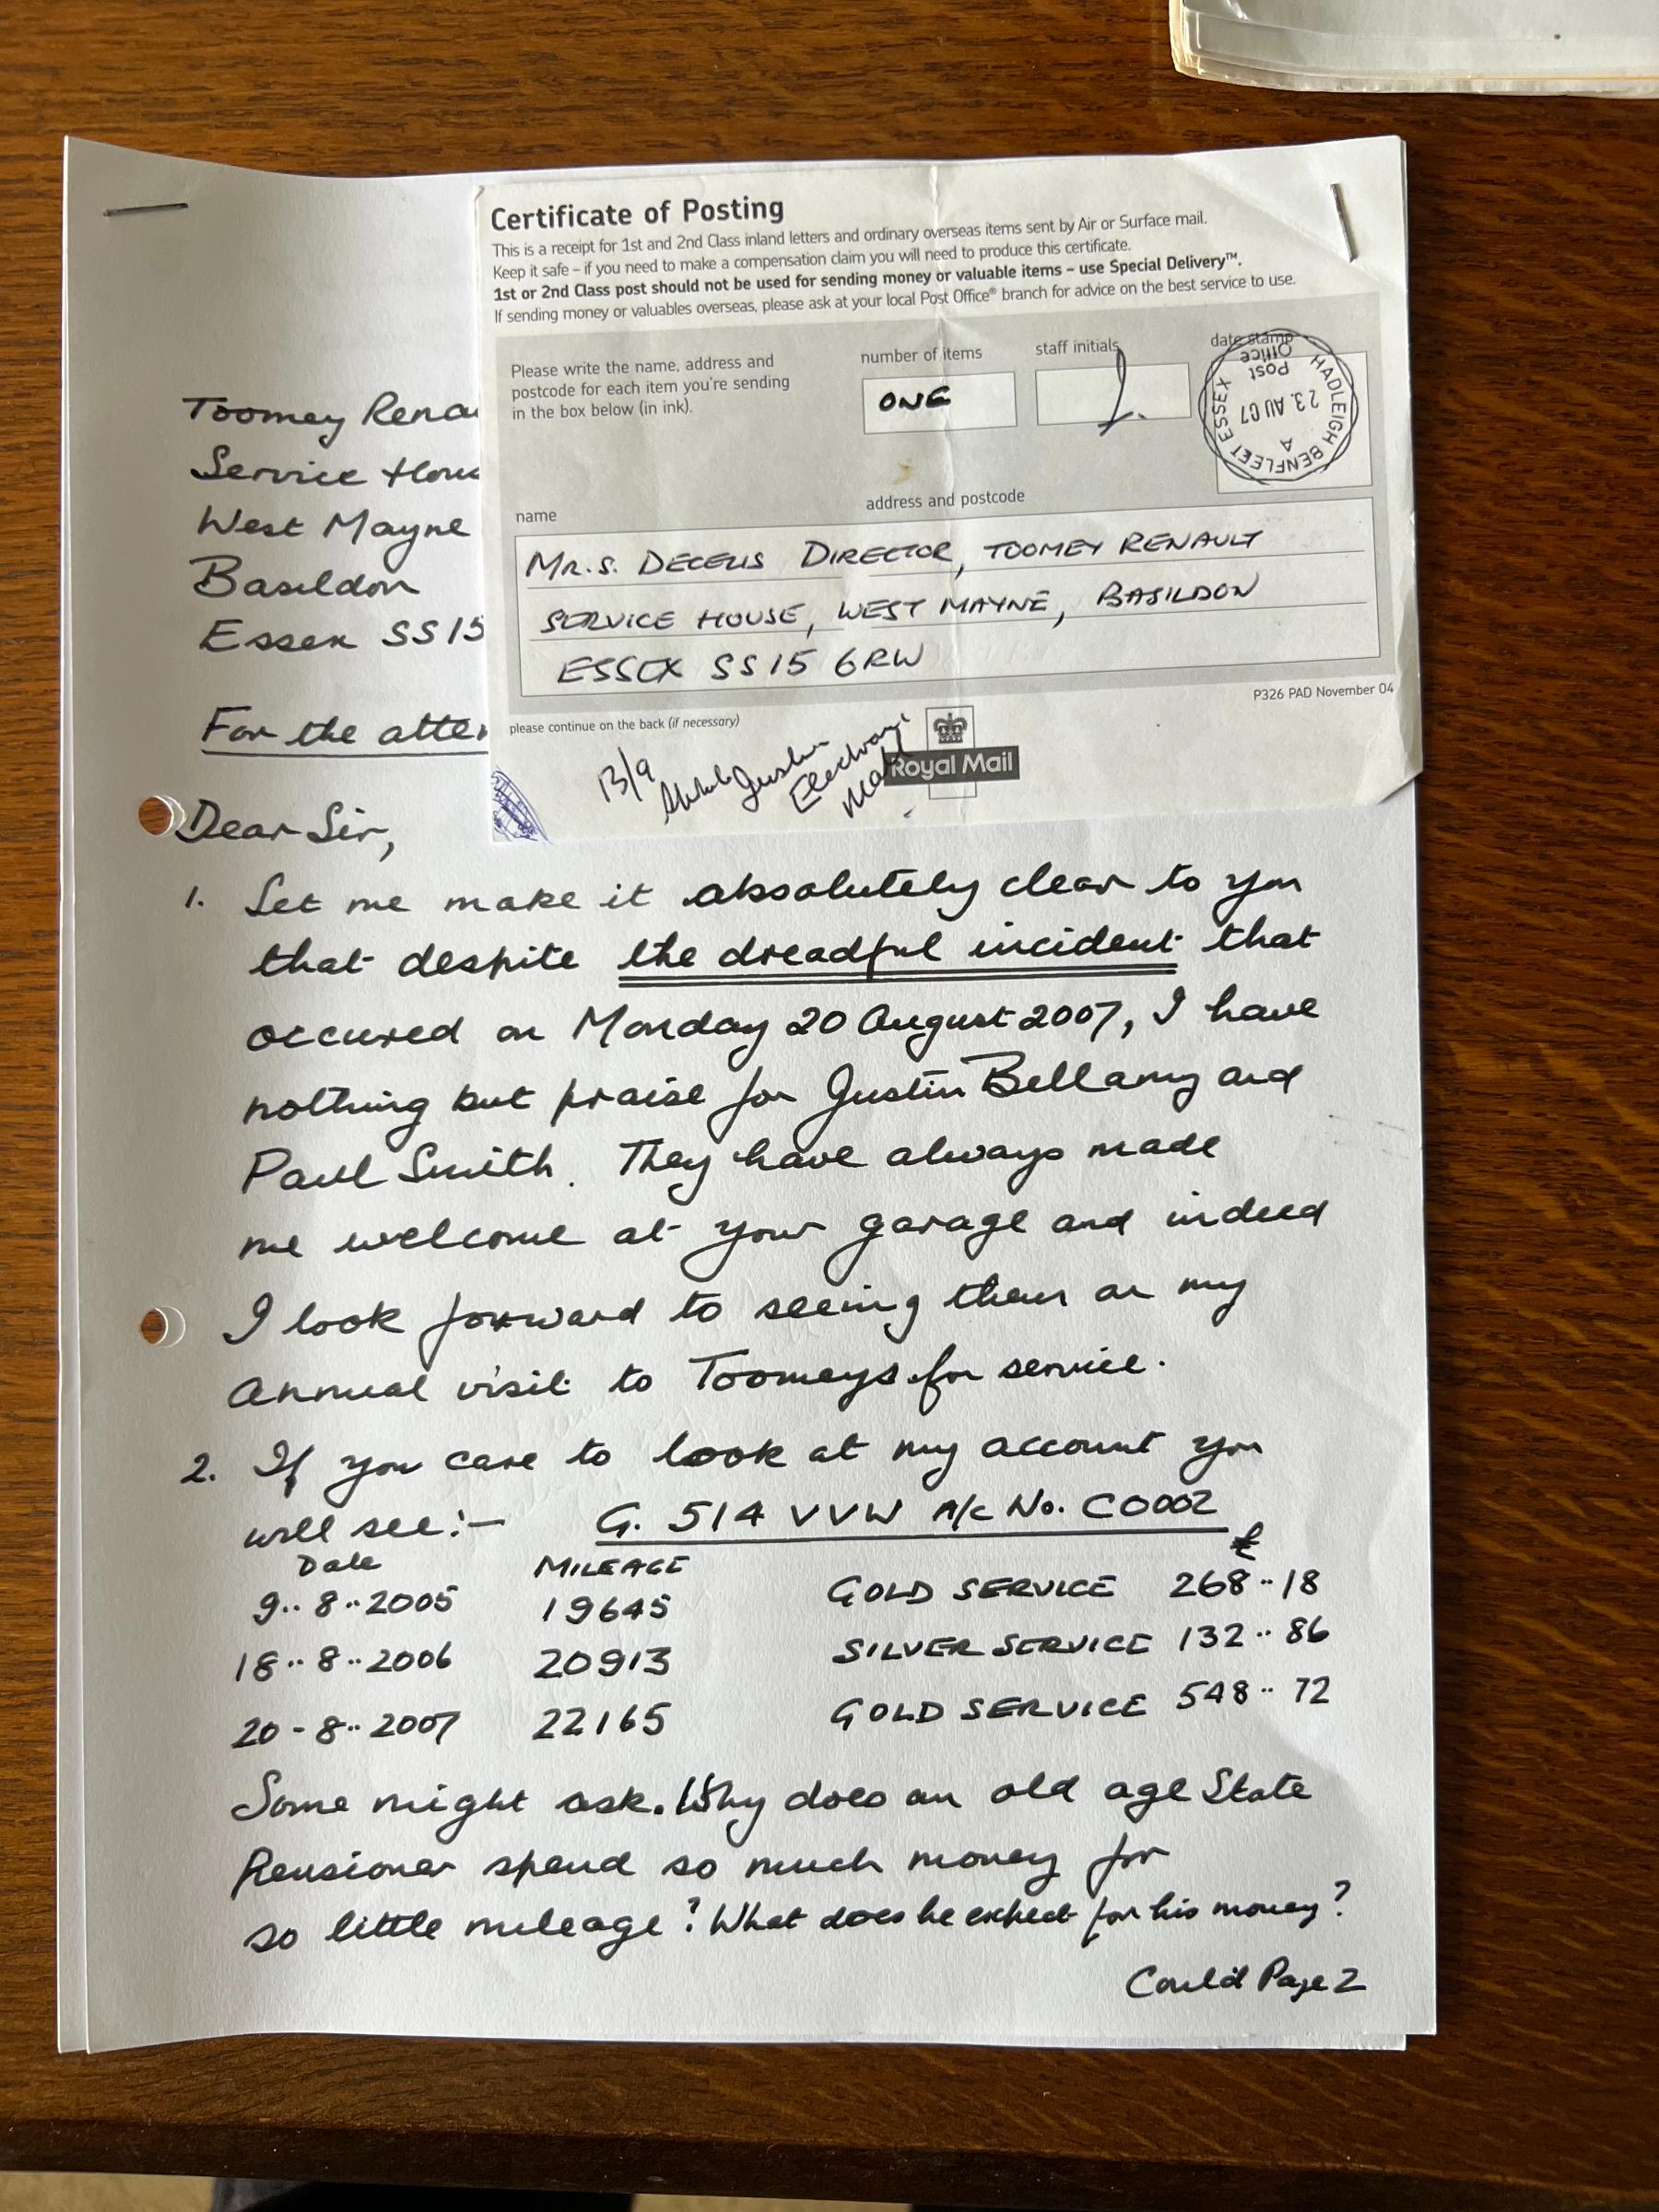 Certificate of Posting
This is a receipt for 1st and 2nd Class inland letters and ordinary overseas items sent by Air or Surface mail.
Keep it safe – if you need to make a compensation claim you will need to produce this certificate.
1st or 2nd Class post should not be used for sending money or valuable items – use Special Delivery™.
If sending money or valuables overseas, please ask at your local Post Office® branch for advice on the best service to use.
Please write the name, address and
postcode for each item you're sending
in the box below (in ink).
number of items
ONE
staff initials
date stamp
HADLEIGH BENFLEET ESSEX
Post
Office
23. AU 07
A
name
address and postcode
MR. S. DECELIS DIRECTOR, TOOMEY RENAULT
SERVICE HOUSE, WEST MAYNE, BASILDON
ESSEX SS15 6RW
P326 PAD November 04
please continue on the back (if necessary)
13/9
Justin
Royal Mail
Toomey Rena
Service Hou
West Mayne
Basildon
Essex SS15
For the atte
Dear Sir,
1. Let me make it absolutely clear to you
that despite the dreadful incident that
occured on Monday 20 August 2007, I have
nothing but praise for Justin Bellamy and
Paul Smith. They have always made
me welcome at your garage and indeed
I look forward to seeing them on my
annual visit to Toomeys for service.
2. If you care to look at my account you
will see:- G. 514 VVW A/c No. C0002
Date MILEAGE £
9..8..2005 19645 GOLD SERVICE 268..18
18..8..2006 20913 SILVER SERVICE 132..86
20-8..2007 22165 GOLD SERVICE 548..72
Some might ask. Why does an old age State
Pensioner spend so much money for
so little mileage? What does he expect for his money?
Cont'd Page 2